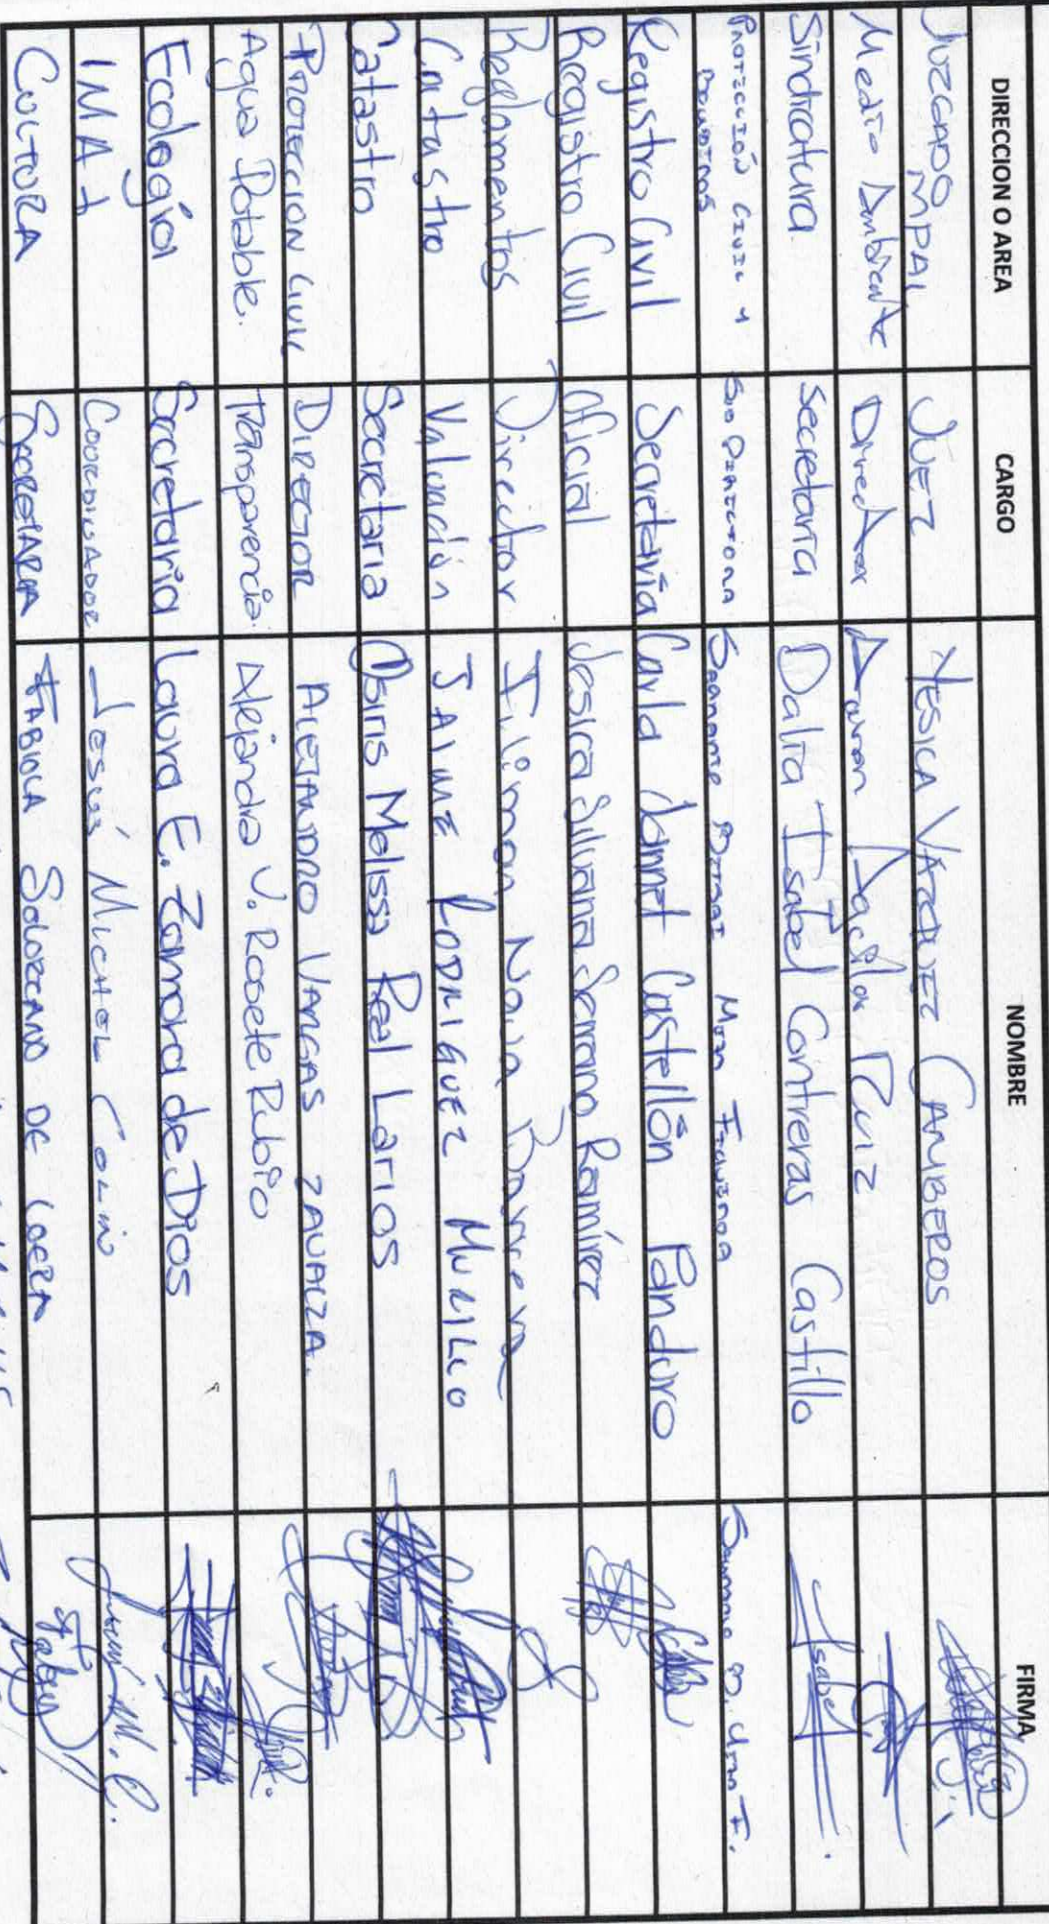 DIRECCION O AREA CARGO NOMBRE FIRMA
JUZGADO MPAL JUEZ YESICA VAZQUEZ CAMBEROS
Medio Ambiente Director Aguilar Ruiz
Sindicatura. Secretaria Dalia Isabel Contreras Castillo Isabel
PROTECCIÓN CIVIL Y BOMBEROS MORA FIGUEROA
Registro Civil Secretaria Carla Jannet Castellón Panduro
Registro Civil Oficial Jesica Silvana Serrano Ramírez
Reglamentos Director
Catastro Valuación JAIME RODRIGUEZ MURILLO
Catastro Secretaria Osiris Melissa Real Larios
PROTECCION CIVIL DIRECTOR ALEJANDRO VARGAS ZAVALZA.
Agua Potable. Transparencia. Alejandra V. Rosete Rubio
Ecología Secretaria Laura E. Zamora de Dios
IMAJ COORDINADOR Jesús MICHEL
CULTURA SECRETARIA FABIOLA SOLORZANO DE